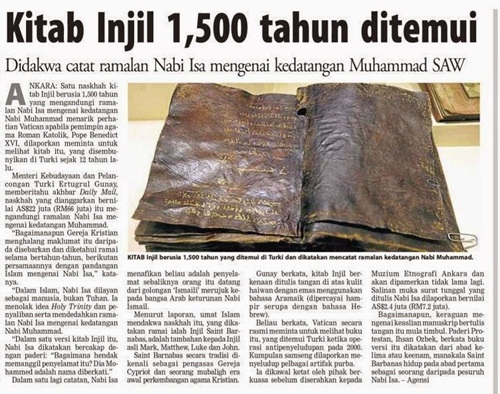 Kitab Injil 1,500 tahun ditemui
Didakwa catat ramalan Nabi Isa mengenai kedatangan Muhammad SAW
ANKARA: Satu naskhah ki-
tab Injil berusia 1,500 tahun
yang mengandungi rama-
lan Nabi Isa mengenai kedatangan
Nabi Muhammad menarik perha-
tian Vatican apabila pemimpin aga-
ma Roman Katolik, Pope Benedict
XVI, dilaporkan meminta untuk
melihat kitab itu, yang disembu-
nyikan di Turki sejak 12 tahun la-
lu.
Menteri Kebudayaan dan Pelan-
congan Turki Ertugrul Gunay,
memberitahu akhbar Daily Mail,
naskhah yang dianggarkan berni-
lai AS$22 juta (RM66 juta) itu me-
ngandungi ramalan Nabi Isa me-
ngenai kedatangan Muhammad.
"Bagaimanapun Gereja Kristian
menghalang maklumat itu daripa-
da disebarkan dan diketahui ramai
selama bertahun-tahun, berikutan
persamaannya dengan pandangan
Islam mengenai Nabi Isa," kata-
nya.
"Dalam Islam, Nabi Isa dilayan
sebagai manusia, bukan Tuhan. Ia
menolak idea Holy Trinity dan pe-
nyaliban serta mendedahkan rama-
lan Nabi Isa mengenai kedatangan
Nabi Muhammad.
"Dalam satu versi kitab Injil itu,
Nabi Isa dikatakan bercakap de-
ngan paderi: "Bagaimana hendak
memanggil penyelamat itu? Dia Mo-
hammed adalah nama diberkati."
Dalam satu lagi catatan, Nabi Isa
KITAB Injil berusia 1,500 tahun yang ditemui di Turki dan dikatakan mencatat ramalan kedatangan Nabi Muhammad.
menafikan beliau adalah penyela-
mat sebaliknya orang itu datang
dari golongan 'Ismaili' merujuk ke-
pada bangsa Arab keturunan Nabi
Ismail.
Menurut laporan, umat Islam
mendakwa naskhah itu, yang dika-
takan ramai ialah Injil Saint Bar-
nabas, adalah tambahan kepada Injil
asli Mark, Matthew, Luke dan John.
Saint Barnabas secara tradisi di-
kenali sebagai pengasas Gereja
Cypriot dan seorang mubaligh era
awal perkembangan agama Kristian.
Gunay berkata, kitab Injil ber-
kenaan ditulis tangan di atas kulit
haiwan dengan emas menggunakan
bahasa Aramaik (dipercayai ham-
pir serupa dengan bahasa He-
brew).
Beliau berkata, Vatican secara
rasmi meminta untuk melihat buku
itu, yang ditemui Turki ketika ope-
rasi antipenyeludupan pada 2000.
Kumpulan samseng dilaporkan me-
nyeludup pelbagai artifak purba.
Ia dikawal ketat oleh pihak ber-
kuasa sebelum diserahkan kepada
Muzium Etnografi Ankara dan
akan dipamerkan tidak lama lagi.
Salinan muka surat tunggal yang
ditulis Nabi Isa dilaporkan bernilai
AS$2.4 juta (RM7.2 juta).
Bagaimanapun, keraguan me-
ngenai keaslian manuskrip bertulis
tangan itu mula timbul. Paderi Pro-
testan, Ihsan Ozbek, berkata buku
versi itu dikatakan dari abad ke-
lima atau keenam, manakala Saint
Barbanas hidup pada abad pertama
dan sebagai seorang daripada pe-
ngikut Nabi Isa. – Agensi